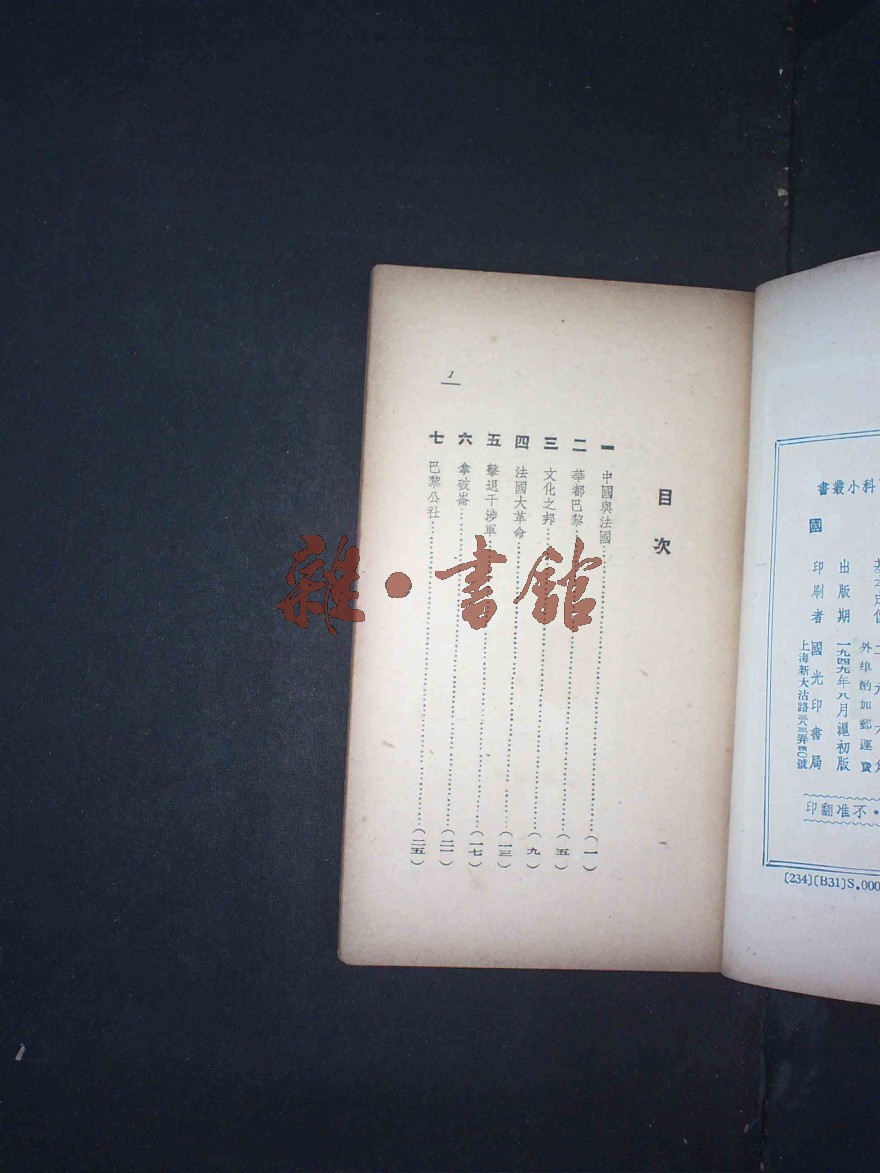 目次
一 中國與法國……(一)
二 華都巴黎……(五)
三 文化之邦……(九)
四 法國大革命……(一三)
五 擊退干涉軍……(一七)
六 拿破崙……(二一)
七 巴黎公社……(二五)
1
書叢小科
國
外埠酌加郵運費
出版期 一九四九年八月滬初版
印刷者 國光印書局
上海新大沽路
印翻准不・
[234][B31]S.000
雜・書館